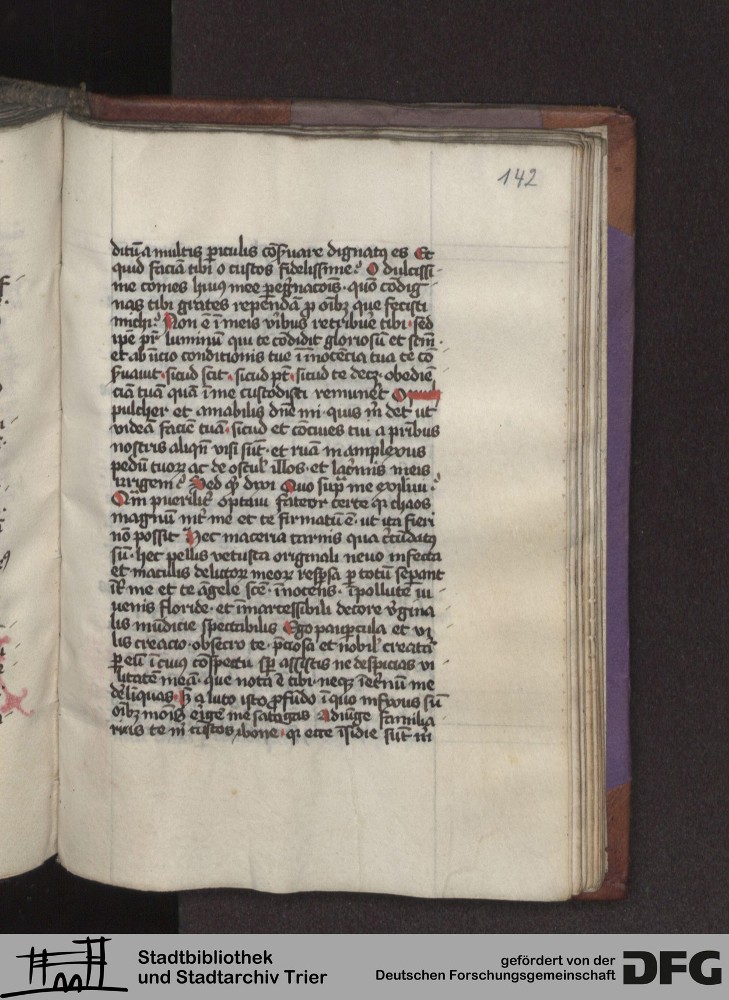 142
ditū a multis ꝑiculis cōẜuare dignatꝰ es Et
quid faciā tibi o custos fidelissime? O dulcissi
me comes huiꝰ mee ꝑegͥnacōis · quō cōdig
nas tibi grates rependā ꝓ oībꝫ que fecisti
michi? Non ē ī meis vībus retribuē tibi · sed
ipē pr̄ luminū qui te cōdidit gloriosū et scm̄ ·
et ab īicio conditionis tue ī īnocēcia tua te cō
ẜuauit · sicud scit · sicud pt̄ · sicud te decꝫ · obediē
ciā tuā quā ī me custodisti remunet O
pulcher et amabilis dn̄e mi · quis m̄ det ut
videā faciē tuā · sicud et cōciues tui a pribus
nostris aliqn̄ visi sūt · et ruā in amplexus
pedū tuoꝝ ac de osculꝭ illos · et lacͥmis meis
irrigem? Sed qͥd dixi Quo supͣ me exiliui?
Qm̄ puerilit̄ optaui fateor certe qꝛ chaos
magnū int̄ me et te firmatū ē · ut ita fieri
nō possit Hec maceria carnis qua cͥcūdatꝰ
sū · hec pellis vetusta originali neuo infecta
et maculis delictoꝝ meoꝝ resꝑsa ꝑ totū seꝑant
īt̄ me et te āgele scē · īnocens · īpollute iu
uenis floride · et īmarcessibili decore v̓gina
lis mūdicie spectabilis Ego paupcula et vi
lis creacio · obsecro te · p̄ciosa et nobilꝭ creatͣ
ꝑ eū ī cuiꝰ cōspectu sꝑ assistis ne despicias vi
litatē meā · que nota ē tibi · neqꝫ īet̄nū me
de̓linquas · sꝫ a luto isto ꝓfūdo ī quo infixus sū
oībꝫ mōis eͥge̓ me satagas Adiūge familia
ricis te m̄ custos bone · qꝛ ecce īsidie sūt m̄
Stadtbibliothek
und Stadtarchiv Trier
gefördert von der
Deutschen Forschungsgemeinschaft
DFG